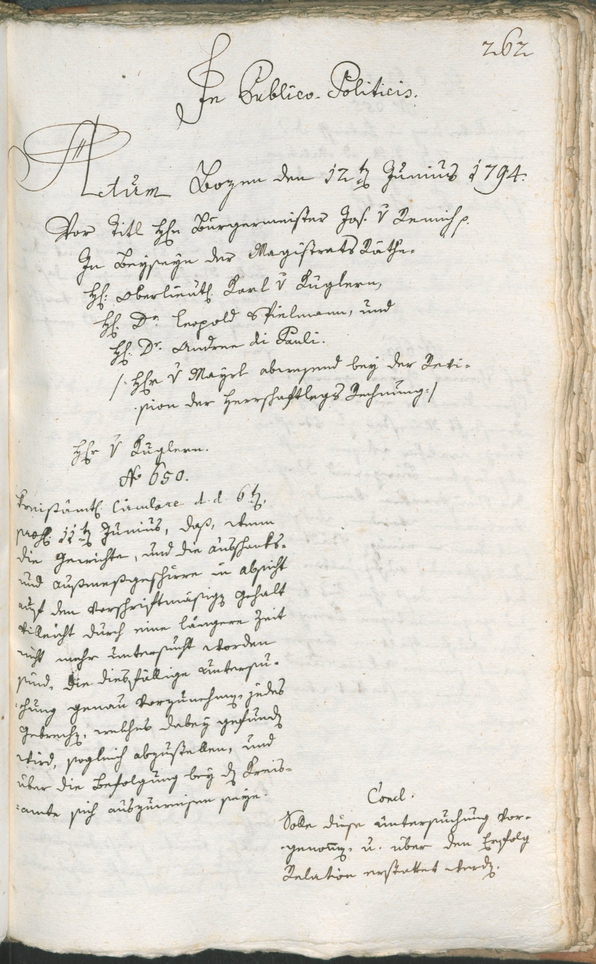 262
In Publico-Politicis.
Actum Bozen den 12tn Junius 1794.
Vor Titl Hhn Bürgermeister Jos. v Remich p.
In Beyseyn der Magistrats Räthe.
Hh: Oberlieuth Karl v Küglern,
Hh: Dr Leopold Spielmann, und
Hh: Dr Andree di Pauli.
/: Hhr v Mayrl abwesend bey der Revi-
sion der Herrschaftlegs Rechnung:/
Hhr v Küglern.
No 650.
Kreisämtl Circulare d. d. 6tn
11tn Junius, daß, wenn
die Gewichte, und die Ausschanks-
und Ausmeßgeschirre in Absicht
auf den Vorschriftmäsigs Gehalt
vielleicht durch eine längere Zeit
nicht mehr untersucht worden
sind, die diesfällige Untersu-
chung genau vorzunehmn, jedes
Gebrechn, welches dabey gefundn
wird, sogleich abzustellen, und
über die Befolgung bey dn Kreis-
amte sich auszuweisen seye.
Concl.
Solle diese Untersuchung vor-
genomn, u. über den Erfolg
Relation erstattet werdn.